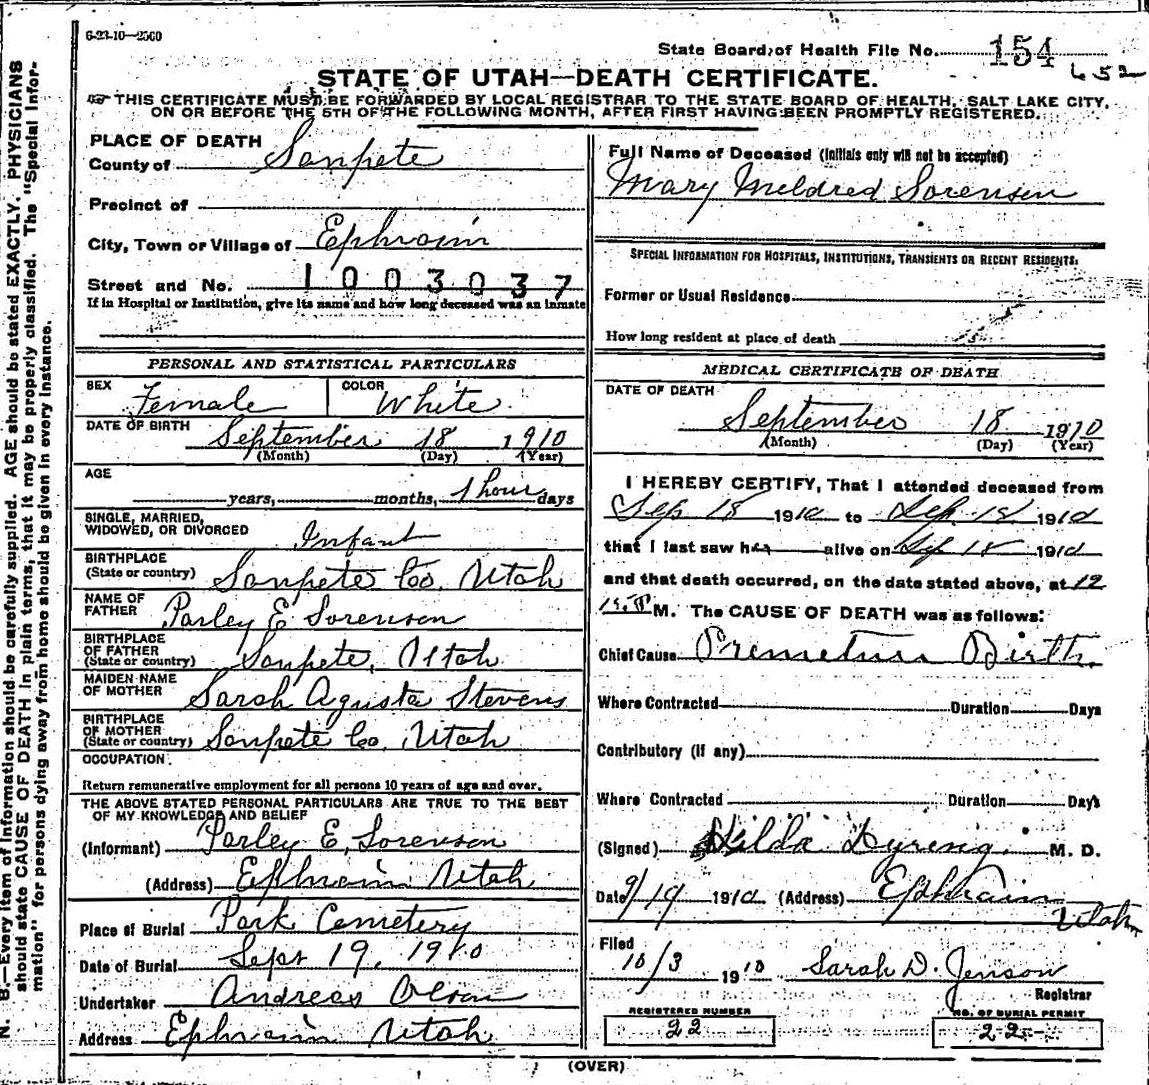 6-23-10—2500
State Board of Health File No. 154
652
STATE OF UTAH—DEATH CERTIFICATE.
THIS CERTIFICATE MUST BE FORWARDED BY LOCAL REGISTRAR TO THE STATE BOARD OF HEALTH, SALT LAKE CITY,
ON OR BEFORE THE 5TH OF THE FOLLOWING MONTH, AFTER FIRST HAVING BEEN PROMPTLY REGISTERED.
N. B.—Every item of information should be carefully supplied. AGE should be stated EXACTLY. PHYSICIANS
should state CAUSE OF DEATH in plain terms, that it may be properly classified. The "Special Infor-
mation" for persons dying away from home should be given in every instance.
PLACE OF DEATH
County of Sanpete
Precinct of
City, Town or Village of Ephraim
Street and No. 1003037
If in Hospital or Institution, give its name and how long deceased was an inmate
PERSONAL AND STATISTICAL PARTICULARS
SEX Female COLOR White
DATE OF BIRTH September 18 1910
(Month) (Day) (Year)
AGE
years, months, 1 hour days
SINGLE, MARRIED,
WIDOWED, OR DIVORCED Infant
BIRTHPLACE
(State or country) Sanpete Co. Utah
NAME OF
FATHER Parley E Sorenson
BIRTHPLACE
OF FATHER
(State or country) Sanpete, Utah
MAIDEN NAME
OF MOTHER Sarah Agusta Stevens
BIRTHPLACE
OF MOTHER
(State or country) Sanpete Co. Utah
OCCUPATION
Return remunerative employment for all persons 10 years of age and over.
THE ABOVE STATED PERSONAL PARTICULARS ARE TRUE TO THE BEST
OF MY KNOWLEDGE AND BELIEF
(Informant) Parley E. Sorenson
(Address) Ephraim Utah
Place of Burial Park Cemetery
Date of Burial Sept 19, 1910
Undertaker Andreas Olson
Address Ephraim Utah
Full Name of Deceased (Initials only will not be accepted)
Mary Mildred Sorensen
SPECIAL INFORMATION FOR HOSPITALS, INSTITUTIONS, TRANSIENTS OR RECENT RESIDENTS:
Former or Usual Residence
How long resident at place of death
MEDICAL CERTIFICATE OF DEATH
DATE OF DEATH
September 18 1910
(Month) (Day) (Year)
I HEREBY CERTIFY, That I attended deceased from
Sep 18 1910 to Sep. 18 1910
that I last saw her alive on Sep 18 1910
and that death occurred, on the date stated above, at 12
15 P M. The CAUSE OF DEATH was as follows:
Chief Cause Premeture Birth.
Where Contracted Duration Days
Contributory (if any)
Where Contracted Duration Days
(Signed) Hilda Dyreng. M. D.
Date 9/19 1910 (Address) Ephraim
Utah
Filed
10/3 1910 Sarah D. Jenson
Registrar
REGISTERED NUMBER
22
NO. OF BURIAL PERMIT
22
(OVER)